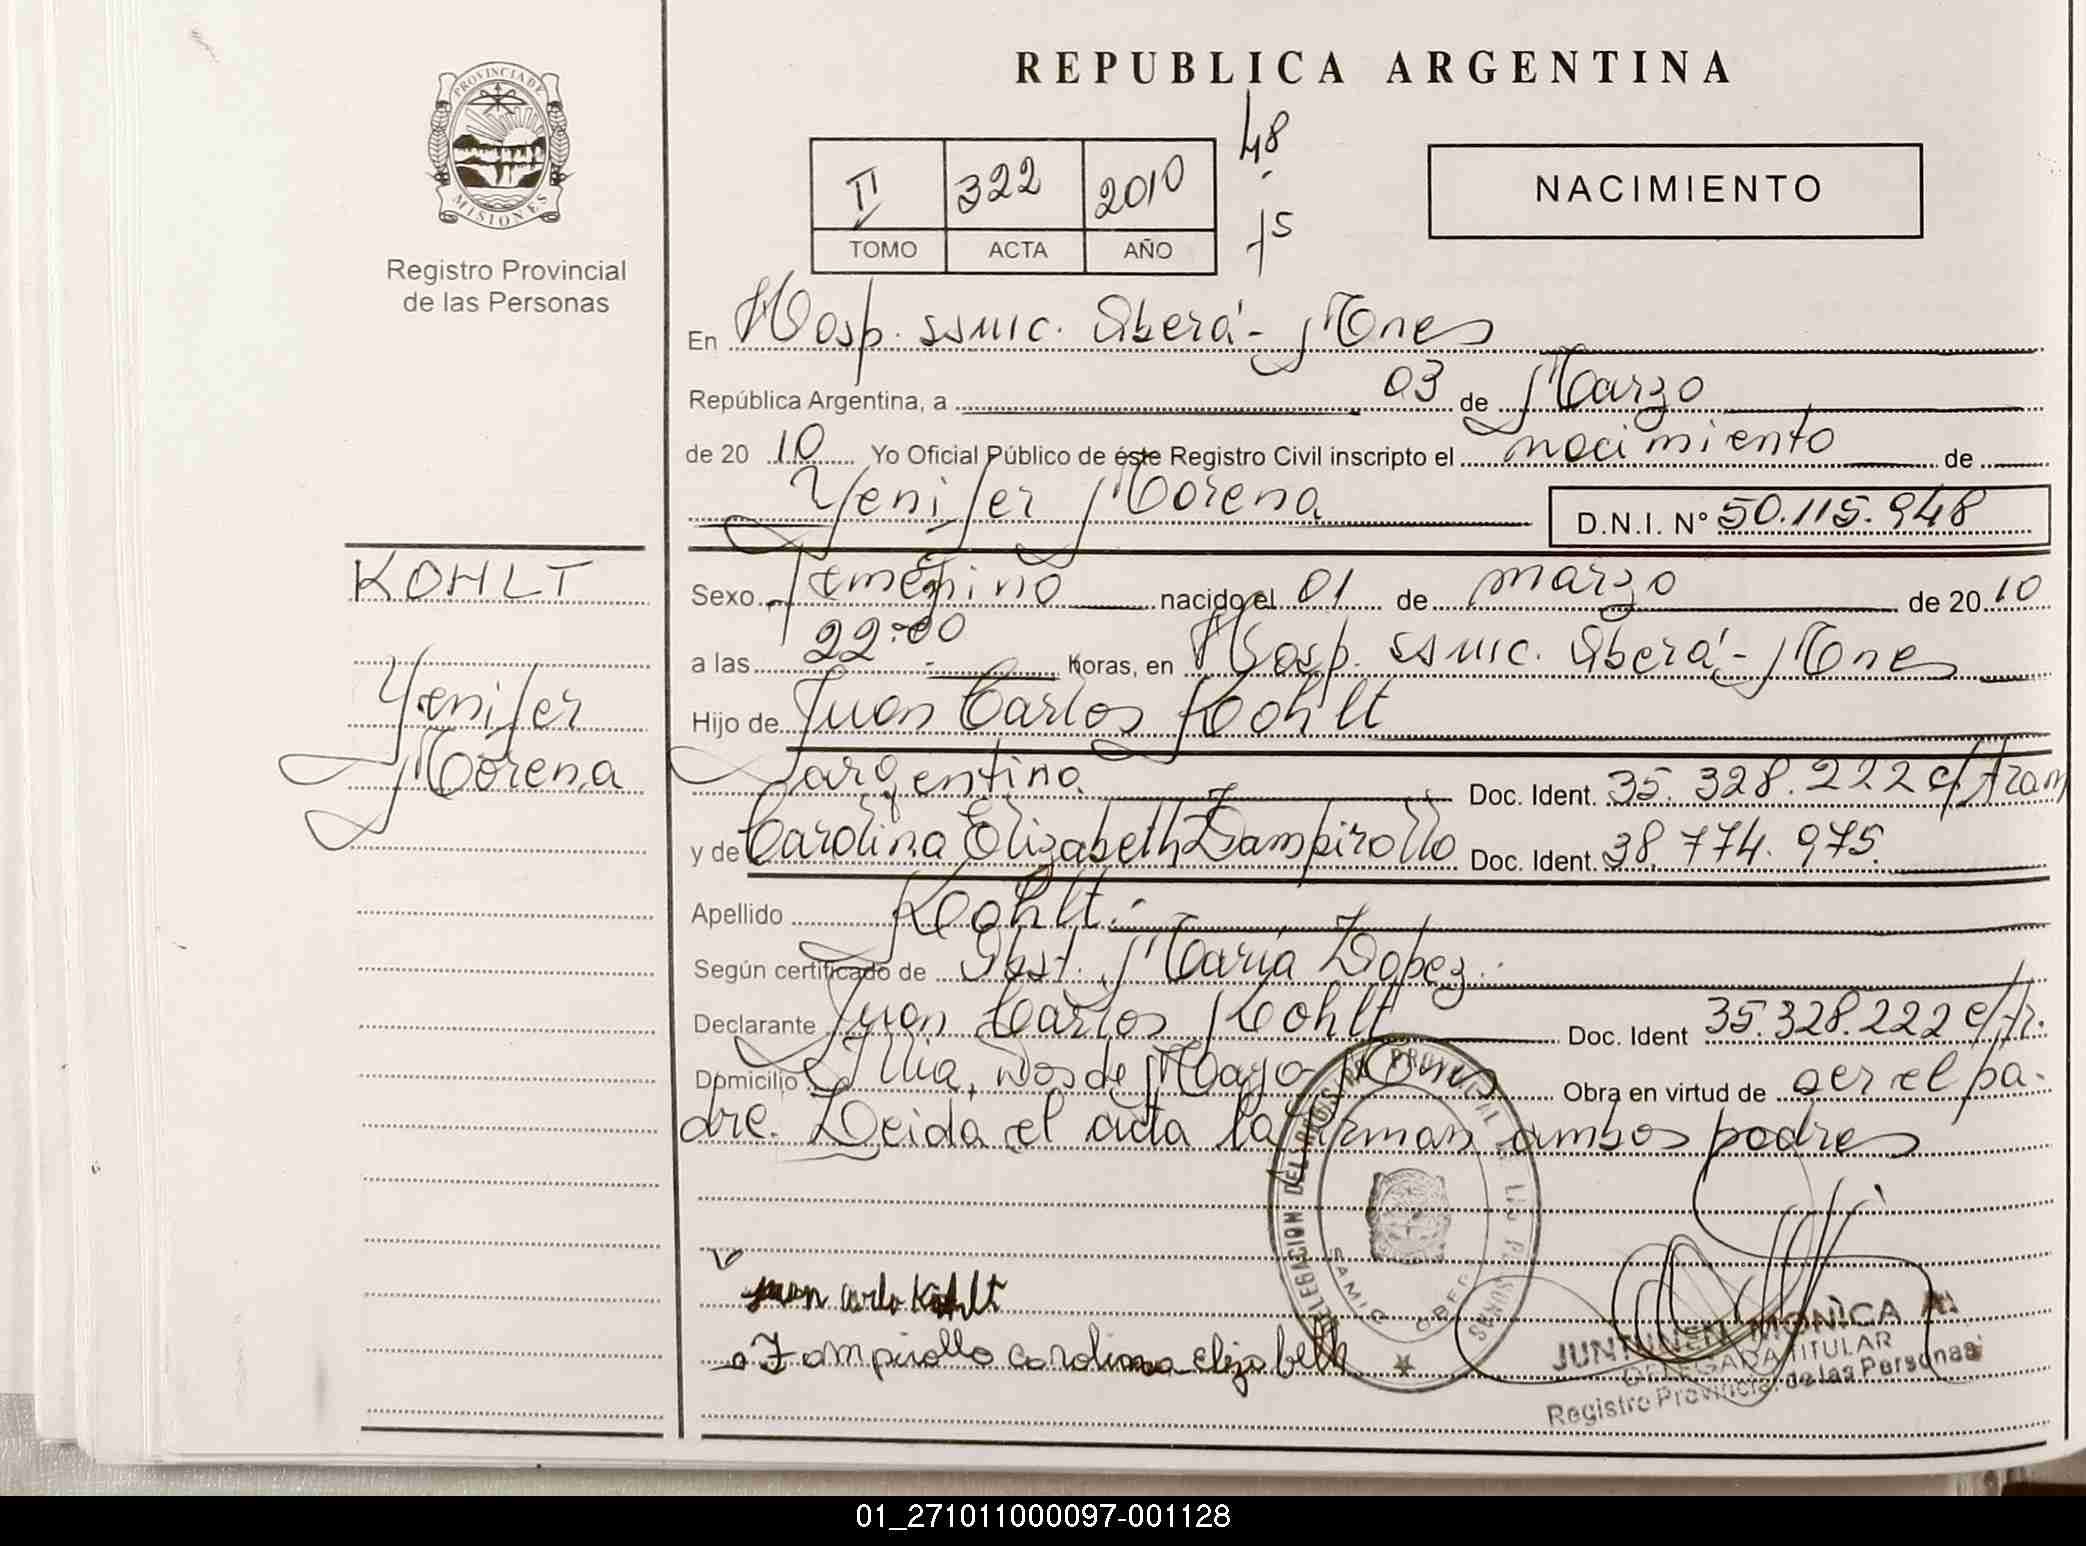 REPUBLICA ARGENTINA
PROVINCIA DE
MISIONES
Registro Provincial
de las Personas
II 322 2010
TOMO ACTA AÑO
48
15
NACIMIENTO
En Hosp. SSMIC. Oberá - Mnes
República Argentina, a 03 de Marzo
de 2010 Yo Oficial Público de éste Registro Civil inscripto el nacimiento de
Yenifer Morena D.N.I. Nº 50.115.948
KOHLT
Yenifer
Morena
Sexo femenino nacido el 01 de marzo de 2010
a las 22:00 horas, en Hosp. SSMIC. Oberá - Mnes
Hijo de Juan Carlos Kohlt
argentino Doc. Ident. 35.328.222 c/tram
y de Carolina Elizabeth Zampirollo Doc. Ident. 38.774.975.
Apellido Kohlt.-
Según certificado de Obst. María Lopez.-
Declarante Juan Carlos Kohlt Doc. Ident 35.328.222 c/tr.
Domicilio Dos de Mayo - Mnes Obra en virtud de ser el pa-
dre. Leida el acta la firman ambos padres
juan carlo Kohlt
Zampirollo carolina elizabeth
DELEGACION DEL REGISTRO PROVINCIAL DE LAS PERSONAS
SAMIC OBERA
JUNTUNEN MONICA A.
DELEGADA TITULAR
Registro Provincial de las Personas
01_271011000097-001128